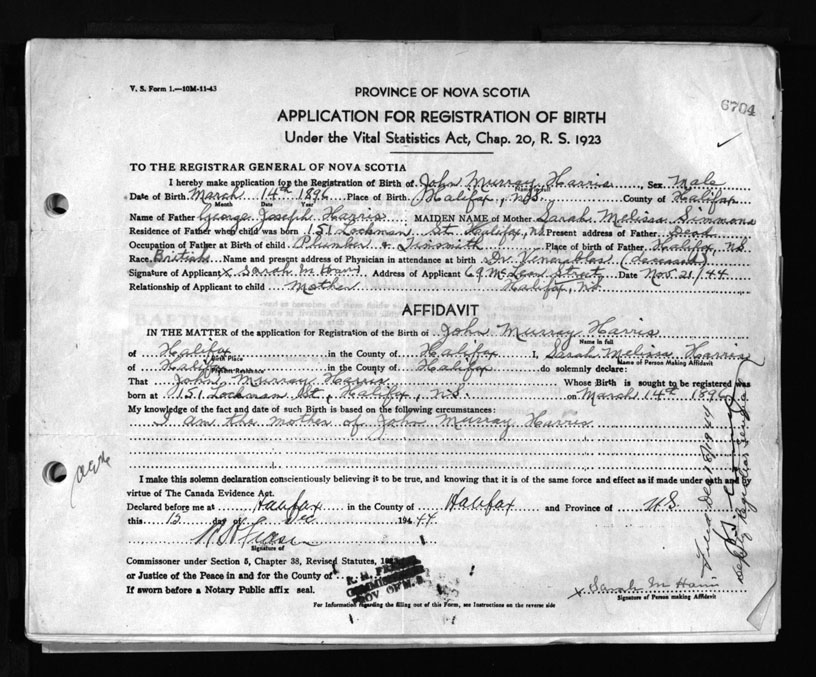 V. S. Form 1.—10M-11-43
PROVINCE OF NOVA SCOTIA
6704
APPLICATION FOR REGISTRATION OF BIRTH
Under the Vital Statistics Act, Chap. 20, R. S. 1923
TO THE REGISTRAR GENERAL OF NOVA SCOTIA
I hereby make application for the Registration of Birth of John Murray Harris Sex Male
Name in full
Date of Birth March 14th 1896 Place of Birth Halifax, N.S. County of Halifax
Month Date Year
Name of Father George Joseph Harris MAIDEN NAME of Mother Sarah Melissa Simmons
Residence of Father when child was born 151 Lockman St. Halifax, N.S. Present address of Father Dead
Occupation of Father at Birth of child Plumber & Tinsmith Place of birth of Father Halifax, N.S.
Race British Name and present address of Physician in attendance at birth Dr. Venarablas (deceased)
Signature of Applicant x Sarah M Harris Address of Applicant 69 McLean Street Date Nov. 21/44
Relationship of Applicant to child mother Halifax, N.S.
AFFIDAVIT
IN THE MATTER of the application for Registration of the Birth of John Murray Harris
Name in full
of Halifax in the County of Halifax I, Sarah Melissa Harris
Birth Place Name of Person Making Affidavit
of Halifax in the County of Halifax do solemnly declare:
Present Residence
That John Murray Harris Whose Birth is sought to be registered was
born at 151 Lockman St., Halifax, N.S. on March 14th 1896
My knowledge of the fact and date of such Birth is based on the following circumstances:
I am the mother of John Murray Harris
I make this solemn declaration conscientiously believing it to be true, and knowing that it is of the same force and effect as if made under oath and by
virtue of The Canada Evidence Act.
Declared before me at Halifax in the County of Halifax and Province of N.S.
this 15 day of Dec 1944
Signature of
Commissoner under Section 5, Chapter 38, Revised Statutes,
or Justice of the Peace in and for the County of
If sworn before a Notary Public affix seal.
x Sarah M Harris
Signature of Person making Affidavit
For Information regarding the filling out of this Form, see Instructions on the reverse side
Deputy Registrar General